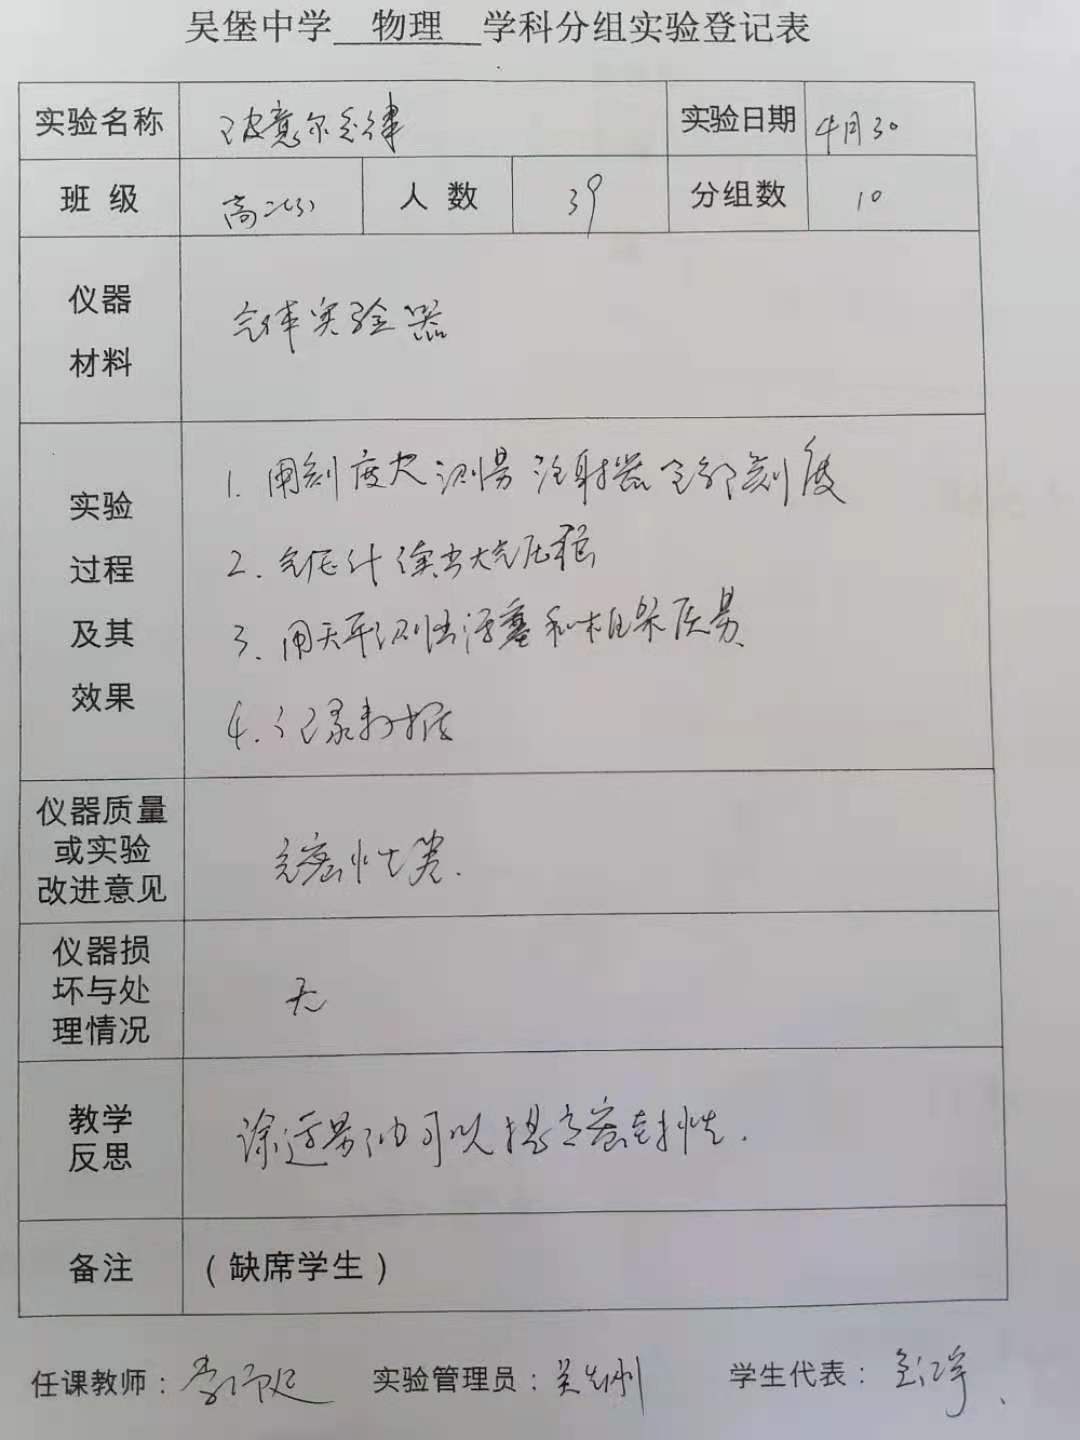 吴堡中学 物理 学科分组实验登记表
实验名称 玻意尔定律 实验日期 4月30
班 级 高二(3) 人 数 39 分组数 10
仪器
材料
气体实验器
实验
过程
及其
效果
1. 用刻度尺测量注射器全部刻度
2. 气压计读出大气压强
3. 用天平测出活塞和框架质量
4. 记录数据
仪器质量
或实验
改进意见
气密性差.
仪器损
坏与处
理情况
无
教学
反思
涂适量油可以提高密封性.
备注 (缺席学生)
任课教师: 实验管理员: 学生代表: